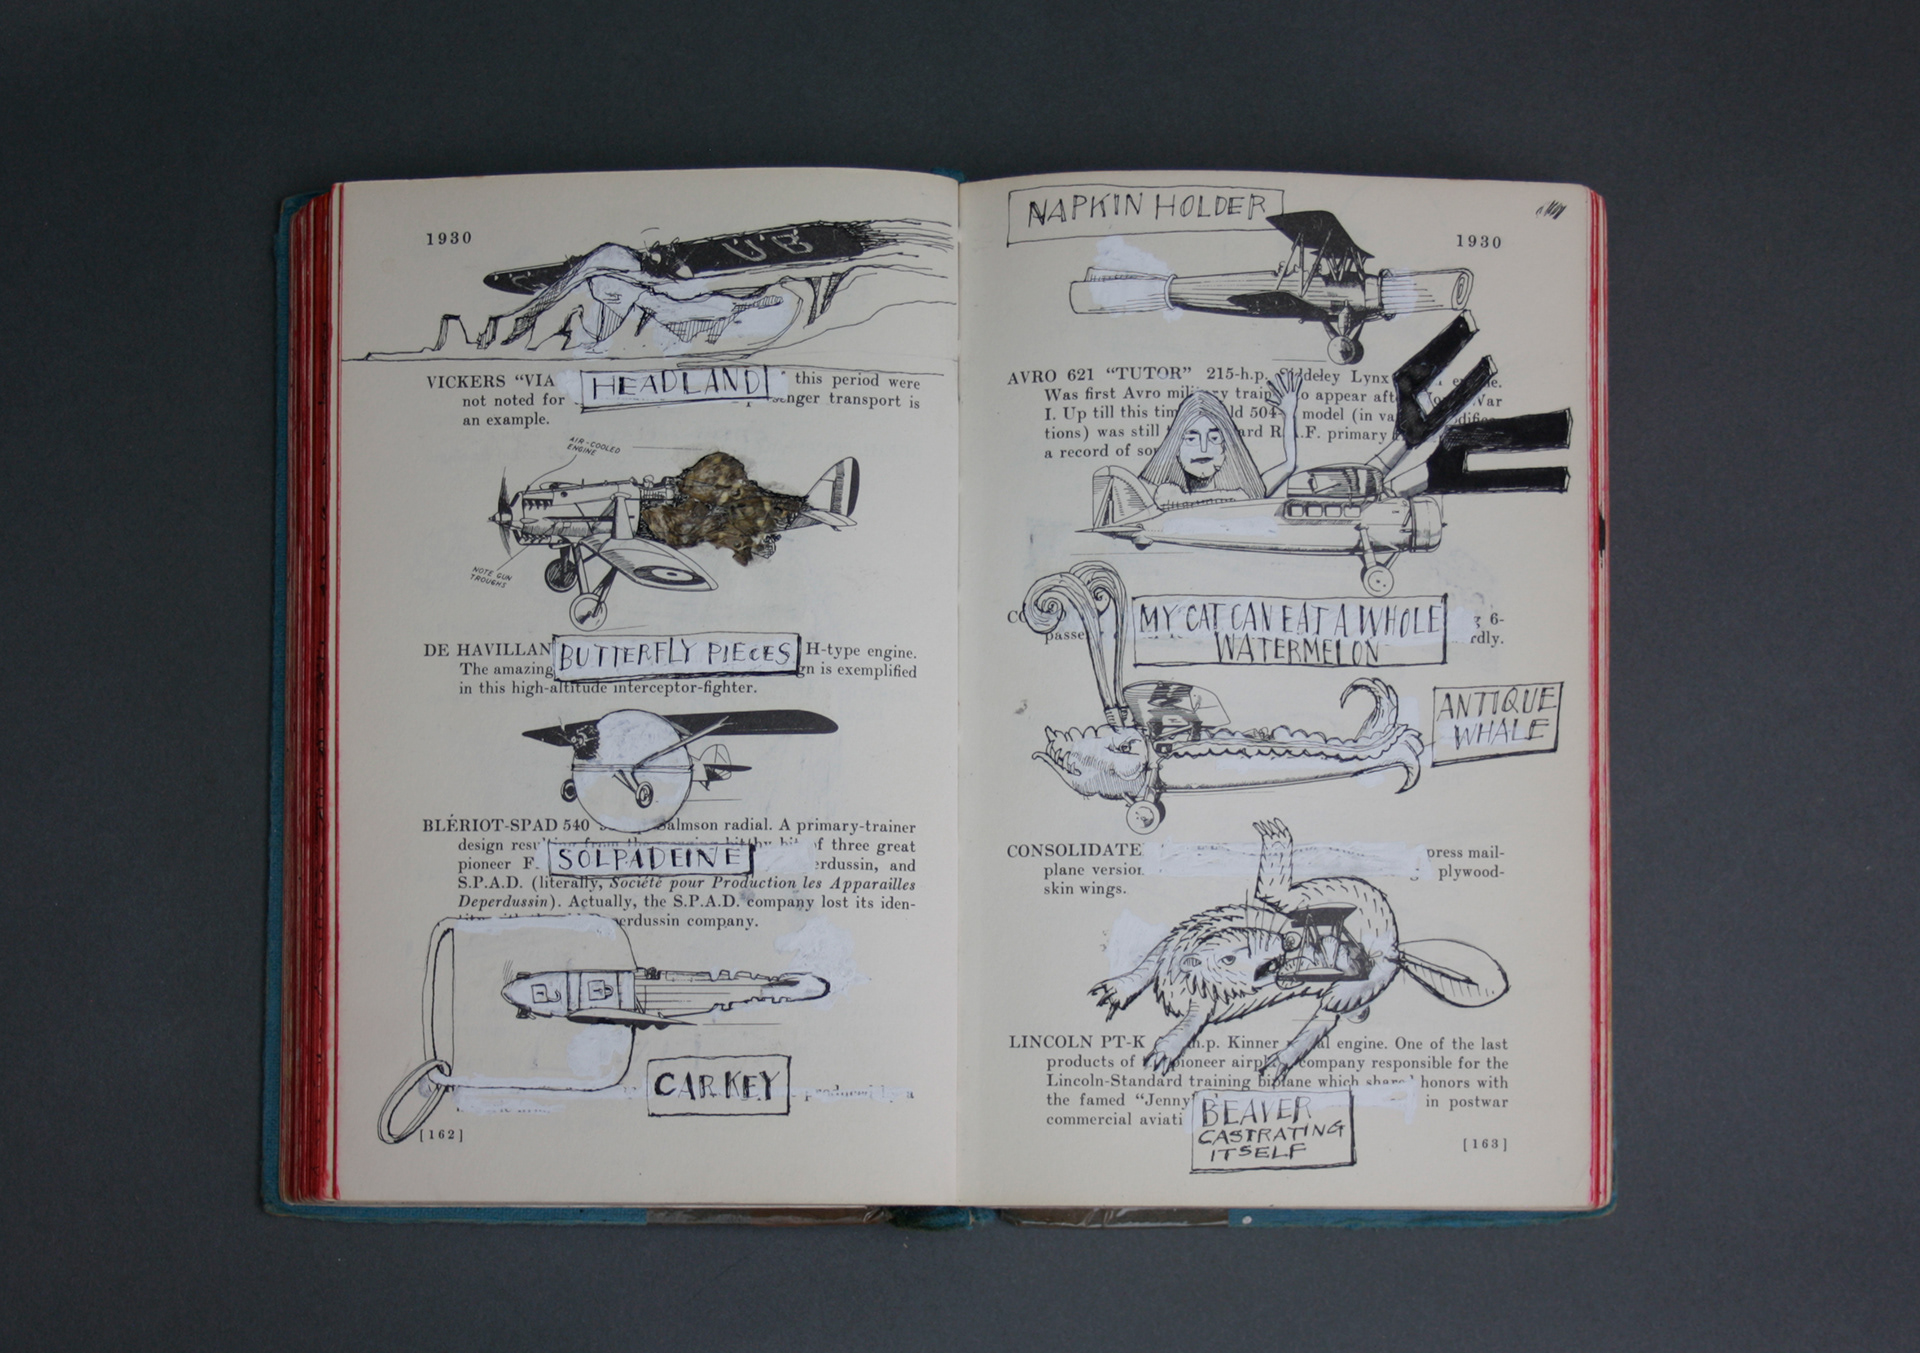 1930
VICKERS “VIA HEADLAND this period were
not noted for nger transport is
an example.
AIR-COOLED
ENGINE
NOTE GUN
TROUGHS
DE HAVILLAN BUTTERFLY PIECES H-type engine.
The amazing gn is exemplified
in this high-altitude interceptor-fighter.
BLÉRIOT-SPAD 540 Salmson radial. A primary-trainer
design resu of three great
pioneer F. SOLPADEINE erdussin, and
S.P.A.D. (literally, Société pour Production les Apparailles
Deperdussin). Actually, the S.P.A.D. company lost its iden-
perdussin company.
CAR KEY
[162]
NAPKIN HOLDER
1930
AVRO 621 “TUTOR” 215-h.p. Siddeley Lynx
Was first Avro military train to appear aft War
I. Up till this tim ld 504 model (in va
tions) was still ard R.A.F. primary
a record of so
MY CAT CAN EAT A WHOLE
WATERMELON
6-
passe rdly.
ANTIQUE
WHALE
CONSOLIDATE press mail-
plane version plywood-
skin wings.
LINCOLN PT-K h.p. Kinner engine. One of the last
products of pioneer airpl company responsible for the
Lincoln-Standard training biplane which shared honors with
the famed “Jenny in postwar
commercial aviati
BEAVER
CASTRATING
ITSELF
[163]